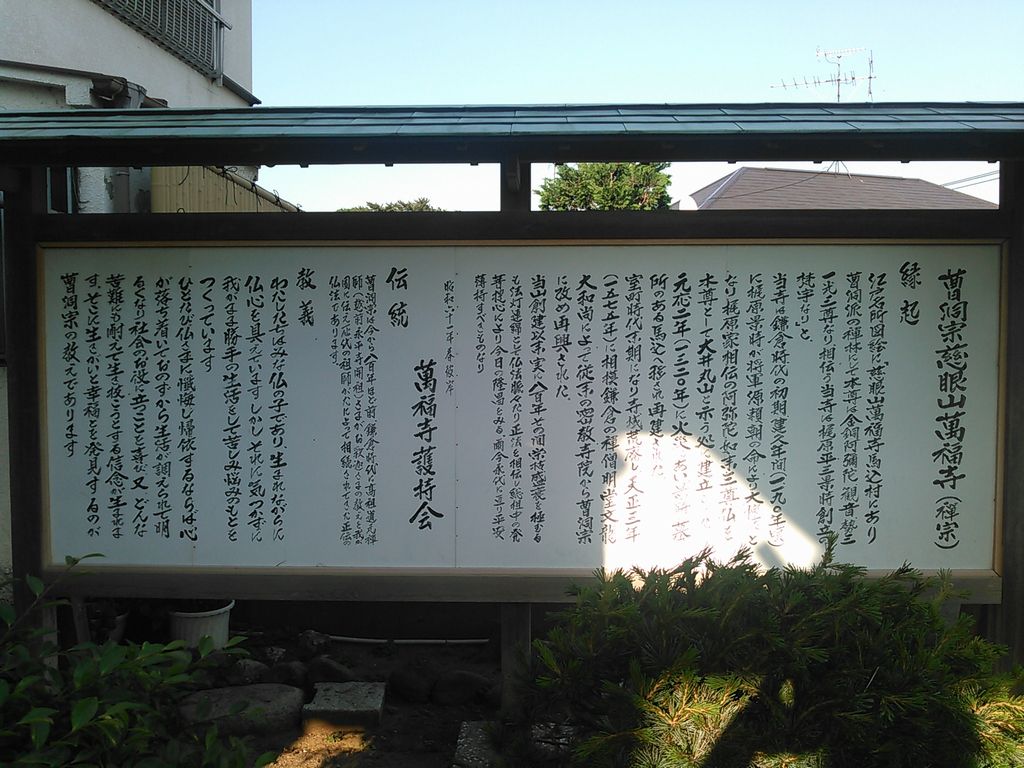 曹洞宗慈眼山萬福寺(禅宗)
縁起
江戸名所図絵に「慈眼山萬福寺馬込村にあり
曹洞派の禅林にして本尊は金銅阿彌陀観音勢三
一光三尊なり相伝ふ当寺は梶原平三景時が創
梵宇なり」と
当寺は鎌倉時代の初期建久年間(一一九〇年
に梶原景時が将軍源頼朝の命により大檀
なり梶原家相伝の阿弥陀如来三尊仏を
本尊として大井丸山と示う処に建立
元応二年(一三二〇年)に火災にあい
所のある馬込へ移され再建された
室町時代末期になり寺域荒廃し天正三年
(一五七五年)に相模鎌倉の禅僧明堂文龍
大和尚によって従来の密教寺院から曹洞宗
に改め再興された
当山創建以来実に八百年その間宗時感衰を極むる
も法灯連綿として仏法脈々たり正法を相伝し総祖その発
菩提心により今日の隆昌をみる南今永代にり平安
護持すべきものなり
昭和六十一年春彼岸
萬福寺護持会
伝統
曹洞宗は今から八百年ほど前鎌倉時代に高祖道元禅
師(越前永平寺開祖)さまがお釈迦さまの教えを我が
国に伝え歴代の祖師がたによって相続されてきた正伝の
仏法であります。
教義
わたしたちはみな仏の子であり生まれながらに
仏心を具えていますしかしそれに気づかずに
我がまま勝手の生活をして苦しみ悩みのもとを
つくっています
ひとたび仏さまに懺悔し帰依するならば心
が落ち着いておのずから生活が調えられて明
るくなり社会のお役に立つことを喜び又どんな
苦難にも耐えて生き抜こうとする信念が生れま
すそこに生きがいと幸福とを発見するのが
曹洞宗の教えであります